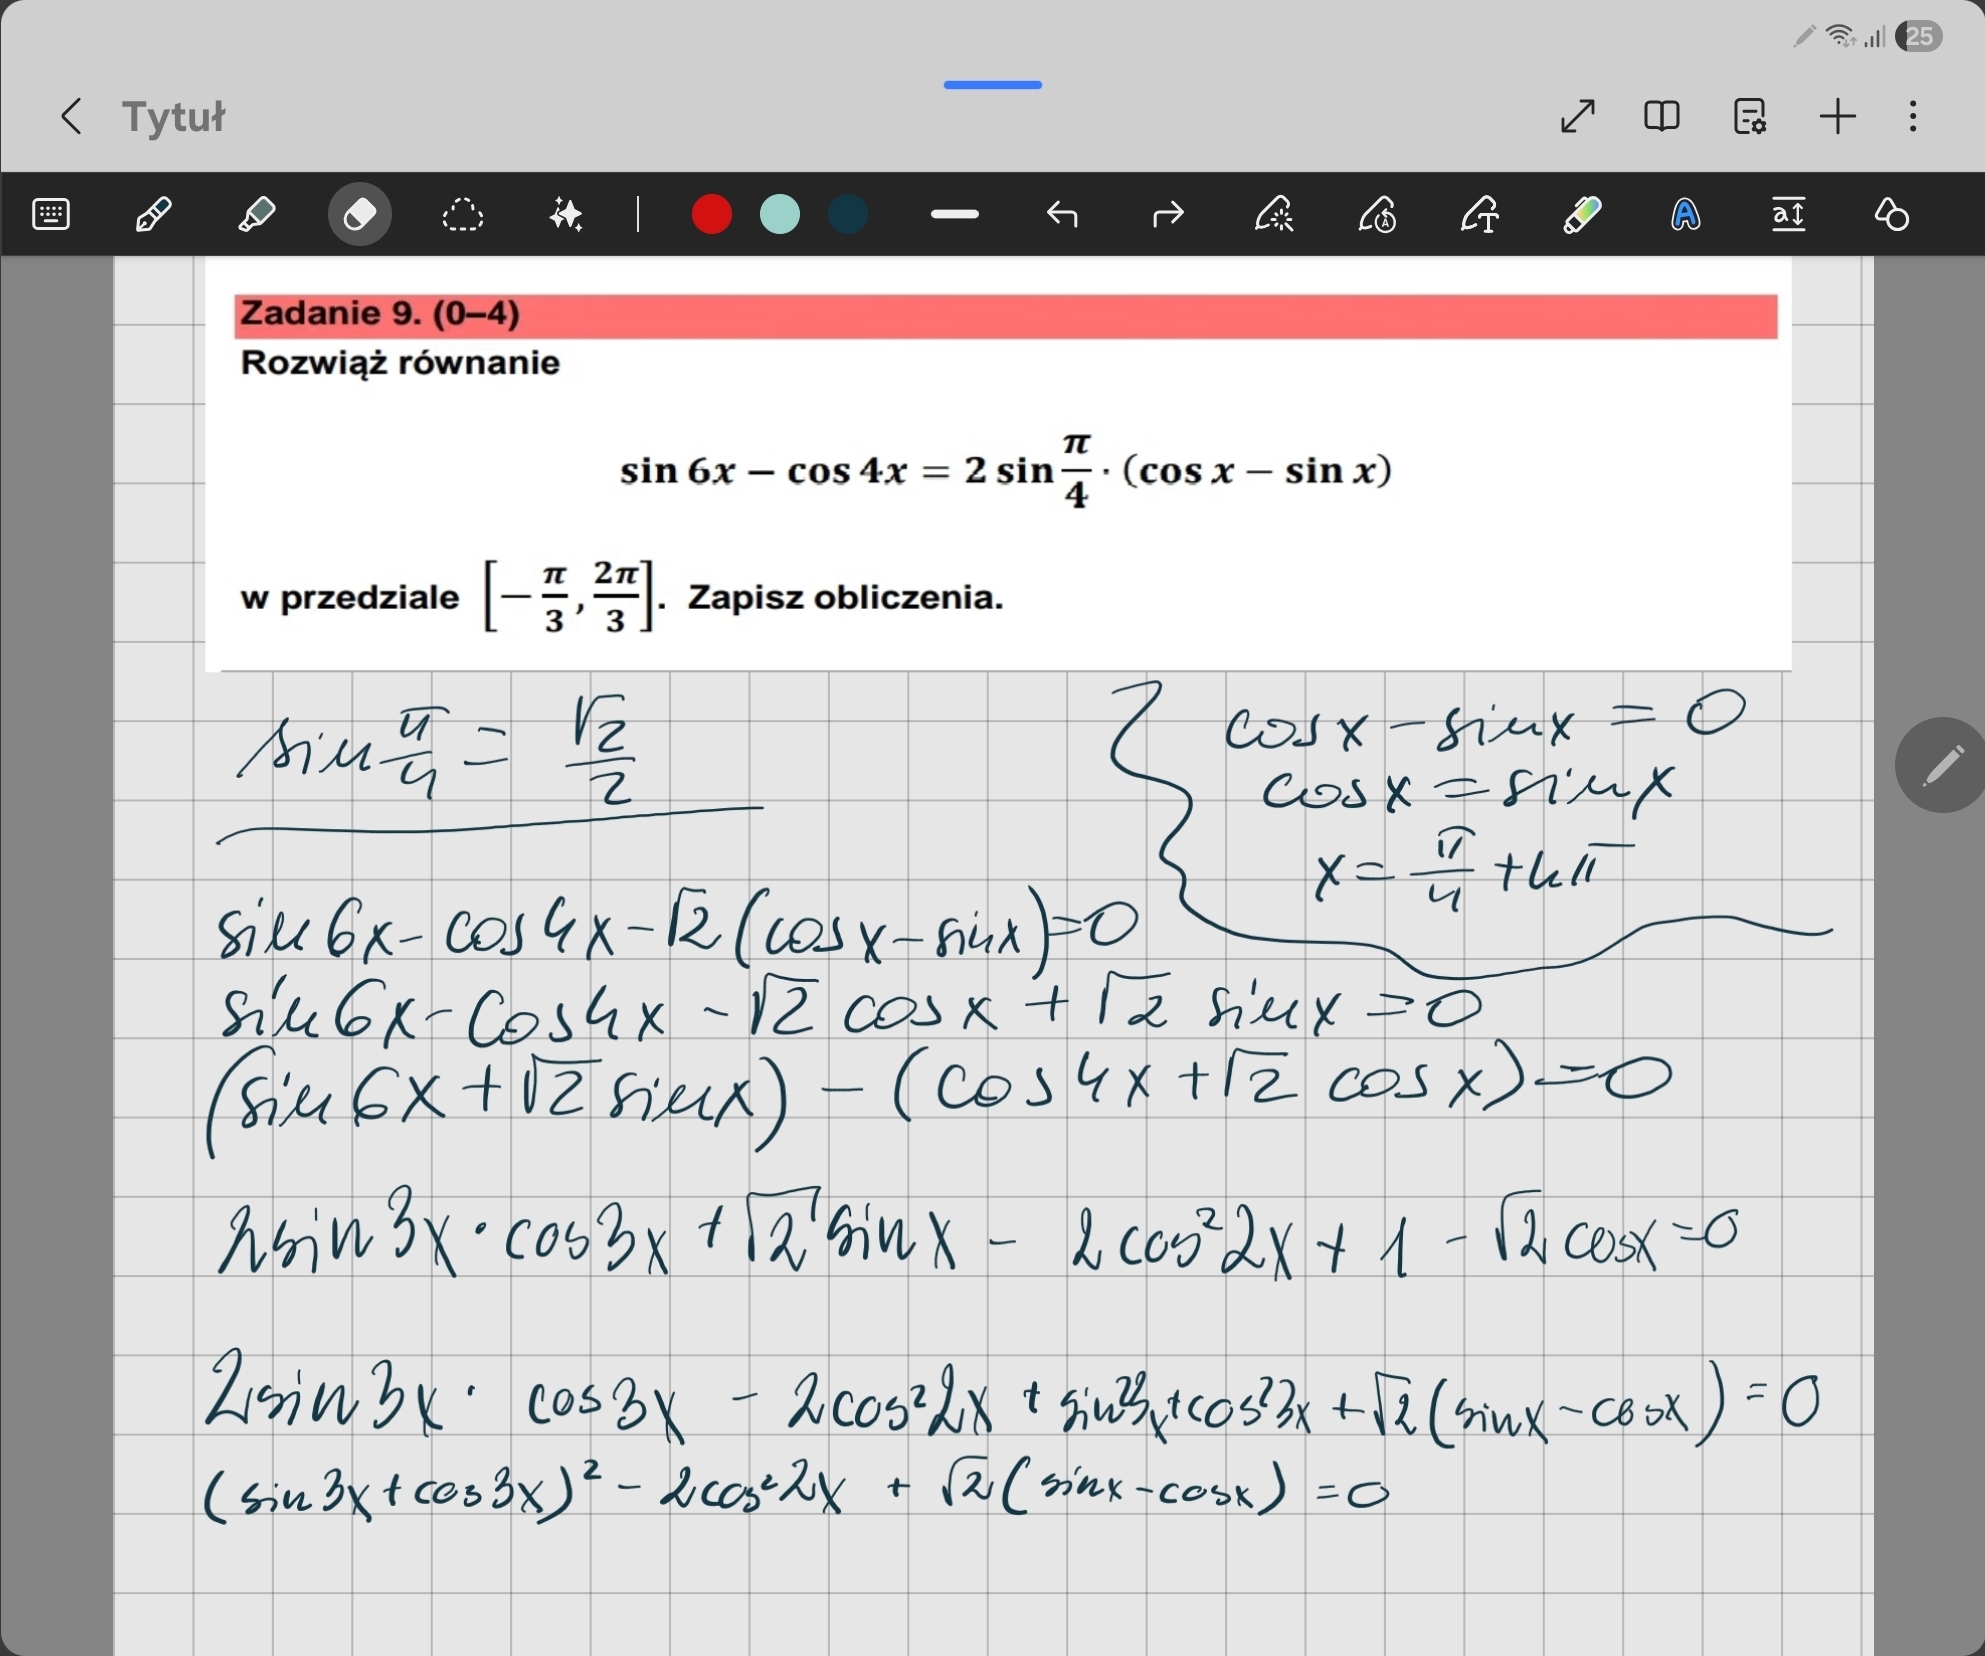 25
Tytuł
Zadanie 9. (0–4)
Rozwiąż równanie
sin 6x − cos 4x = 2 sin π/4 · (cos x − sin x)
w przedziale [−π/3, 2π/3]. Zapisz obliczenia.
sin π/4 = √2/2
cosx − sinx = 0
cosx = sinx
x = π/4 + kπ
sin6x − cos4x − √2(cosx − sinx) = 0
sin6x − cos4x − √2 cosx + √2 sinx = 0
(sin6x + √2 sinx) − (cos4x + √2 cosx) = 0
2sin3x · cos3x + √2 sinx − 2cos²2x + 1 − √2 cosx = 0
2sin3x · cos3x − 2cos²2x + sin²3x + cos²3x + √2(sinx − cosx) = 0
(sin3x + cos3x)² − 2cos²2x + √2(sinx − cosx) = 0